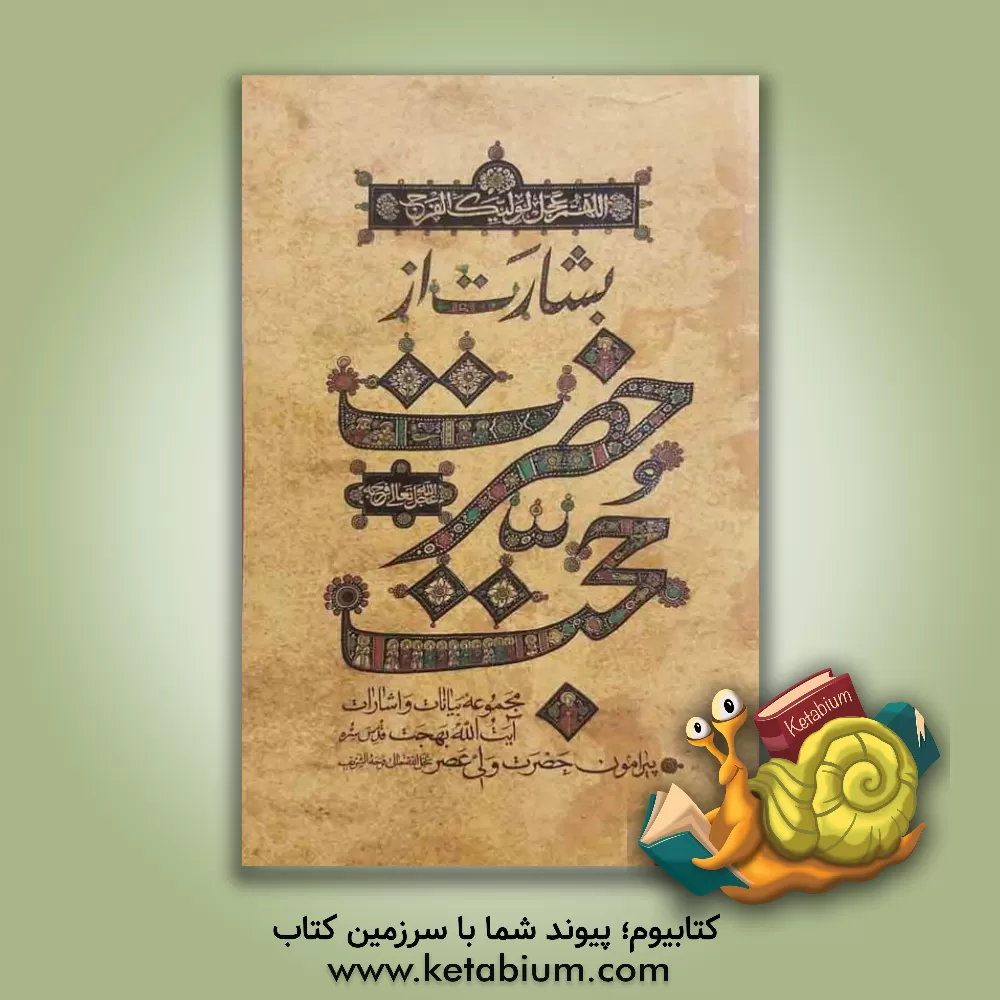 اللهم عجل لولیک الفرج
بشارت از
حضرت
عجل الله تعالی فرجه
حجت
مجموعه بیانات و اشارات
آیت الله بهجت قدس سره
پیرامون حضرت ولی عصر عجل الله تعالی فرجه الشریف
Ketabium
کتابیوم؛ پیوند شما با سرزمین کتاب
www.ketabium.com